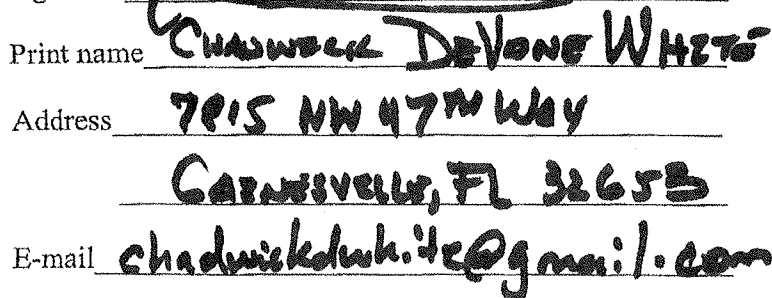 Print name CHADWICK DEVONE WHITE
Address 7815 NW 47TH WAY
GAINESVILLE, FL 32653
E-mail chadwickdwhite@gmail.com